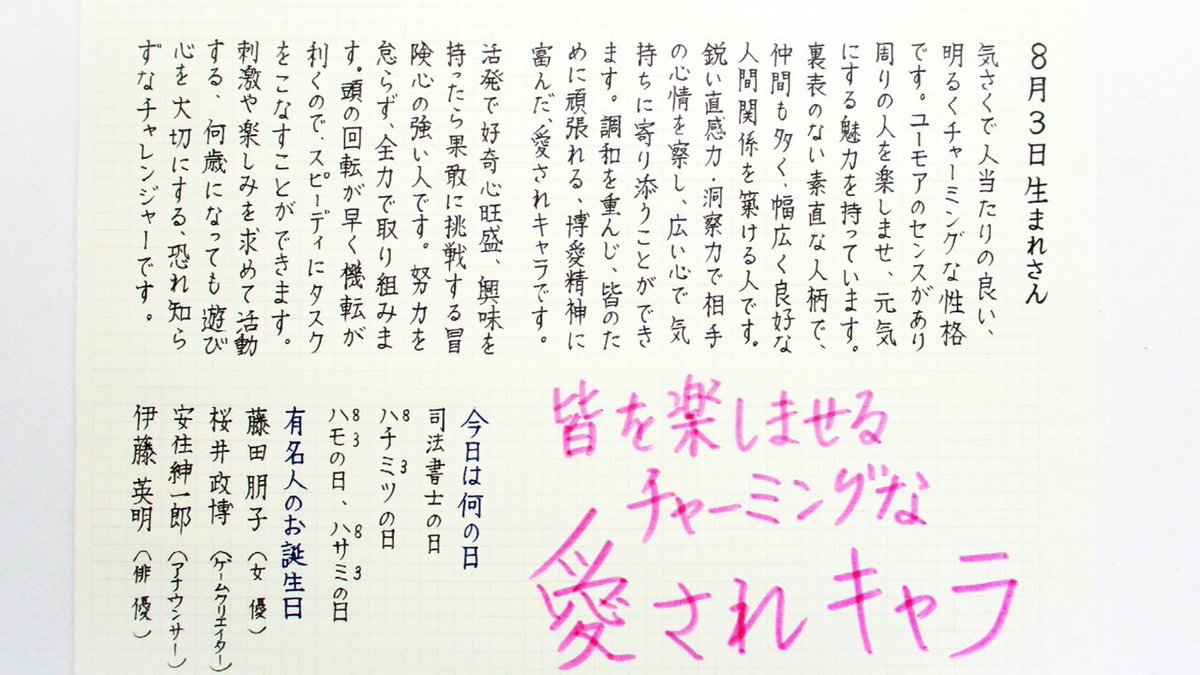 8月3日生まれさん
気さくで人当たりの良い、
明るくチャーミングな性格
です。ユーモアのセンスがあり
周りの人を楽しませ、元気
にする魅力を持っています。
裏表のない素直な人柄で、
仲間も多く、幅広く良好な
人間関係を築ける人です。
鋭い直感力・洞察力で相手
の心情を察し、広い心で気
持ちに寄り添うことができ
ます。調和を重んじ、皆のた
めに頑張れる、博愛精神に
富んだ、愛されキャラです。
活発で好奇心旺盛、興味を
持ったら果敢に挑戦する冒
険心の強い人です。努力を
怠らず、全力で取り組みま
す。頭の回転が早く機転が
利くので、スピーディにタスク
をこなすことができます。
刺激や楽しみを求めて活動
する、何歳になっても遊び
心を大切にする、恐れ知ら
ずなチャレンジャーです。
皆を楽しませる
チャーミングな
愛されキャラ
今日は何の日
司法書士の日
8 3
ハチミツの日
8 3 8 3
ハモの日、ハサミの日
有名人のお誕生日
藤田朋子(女優)
桜井政博(ゲームクリエイター)
安住紳一郎(アナウンサー)
伊藤英明(俳優)